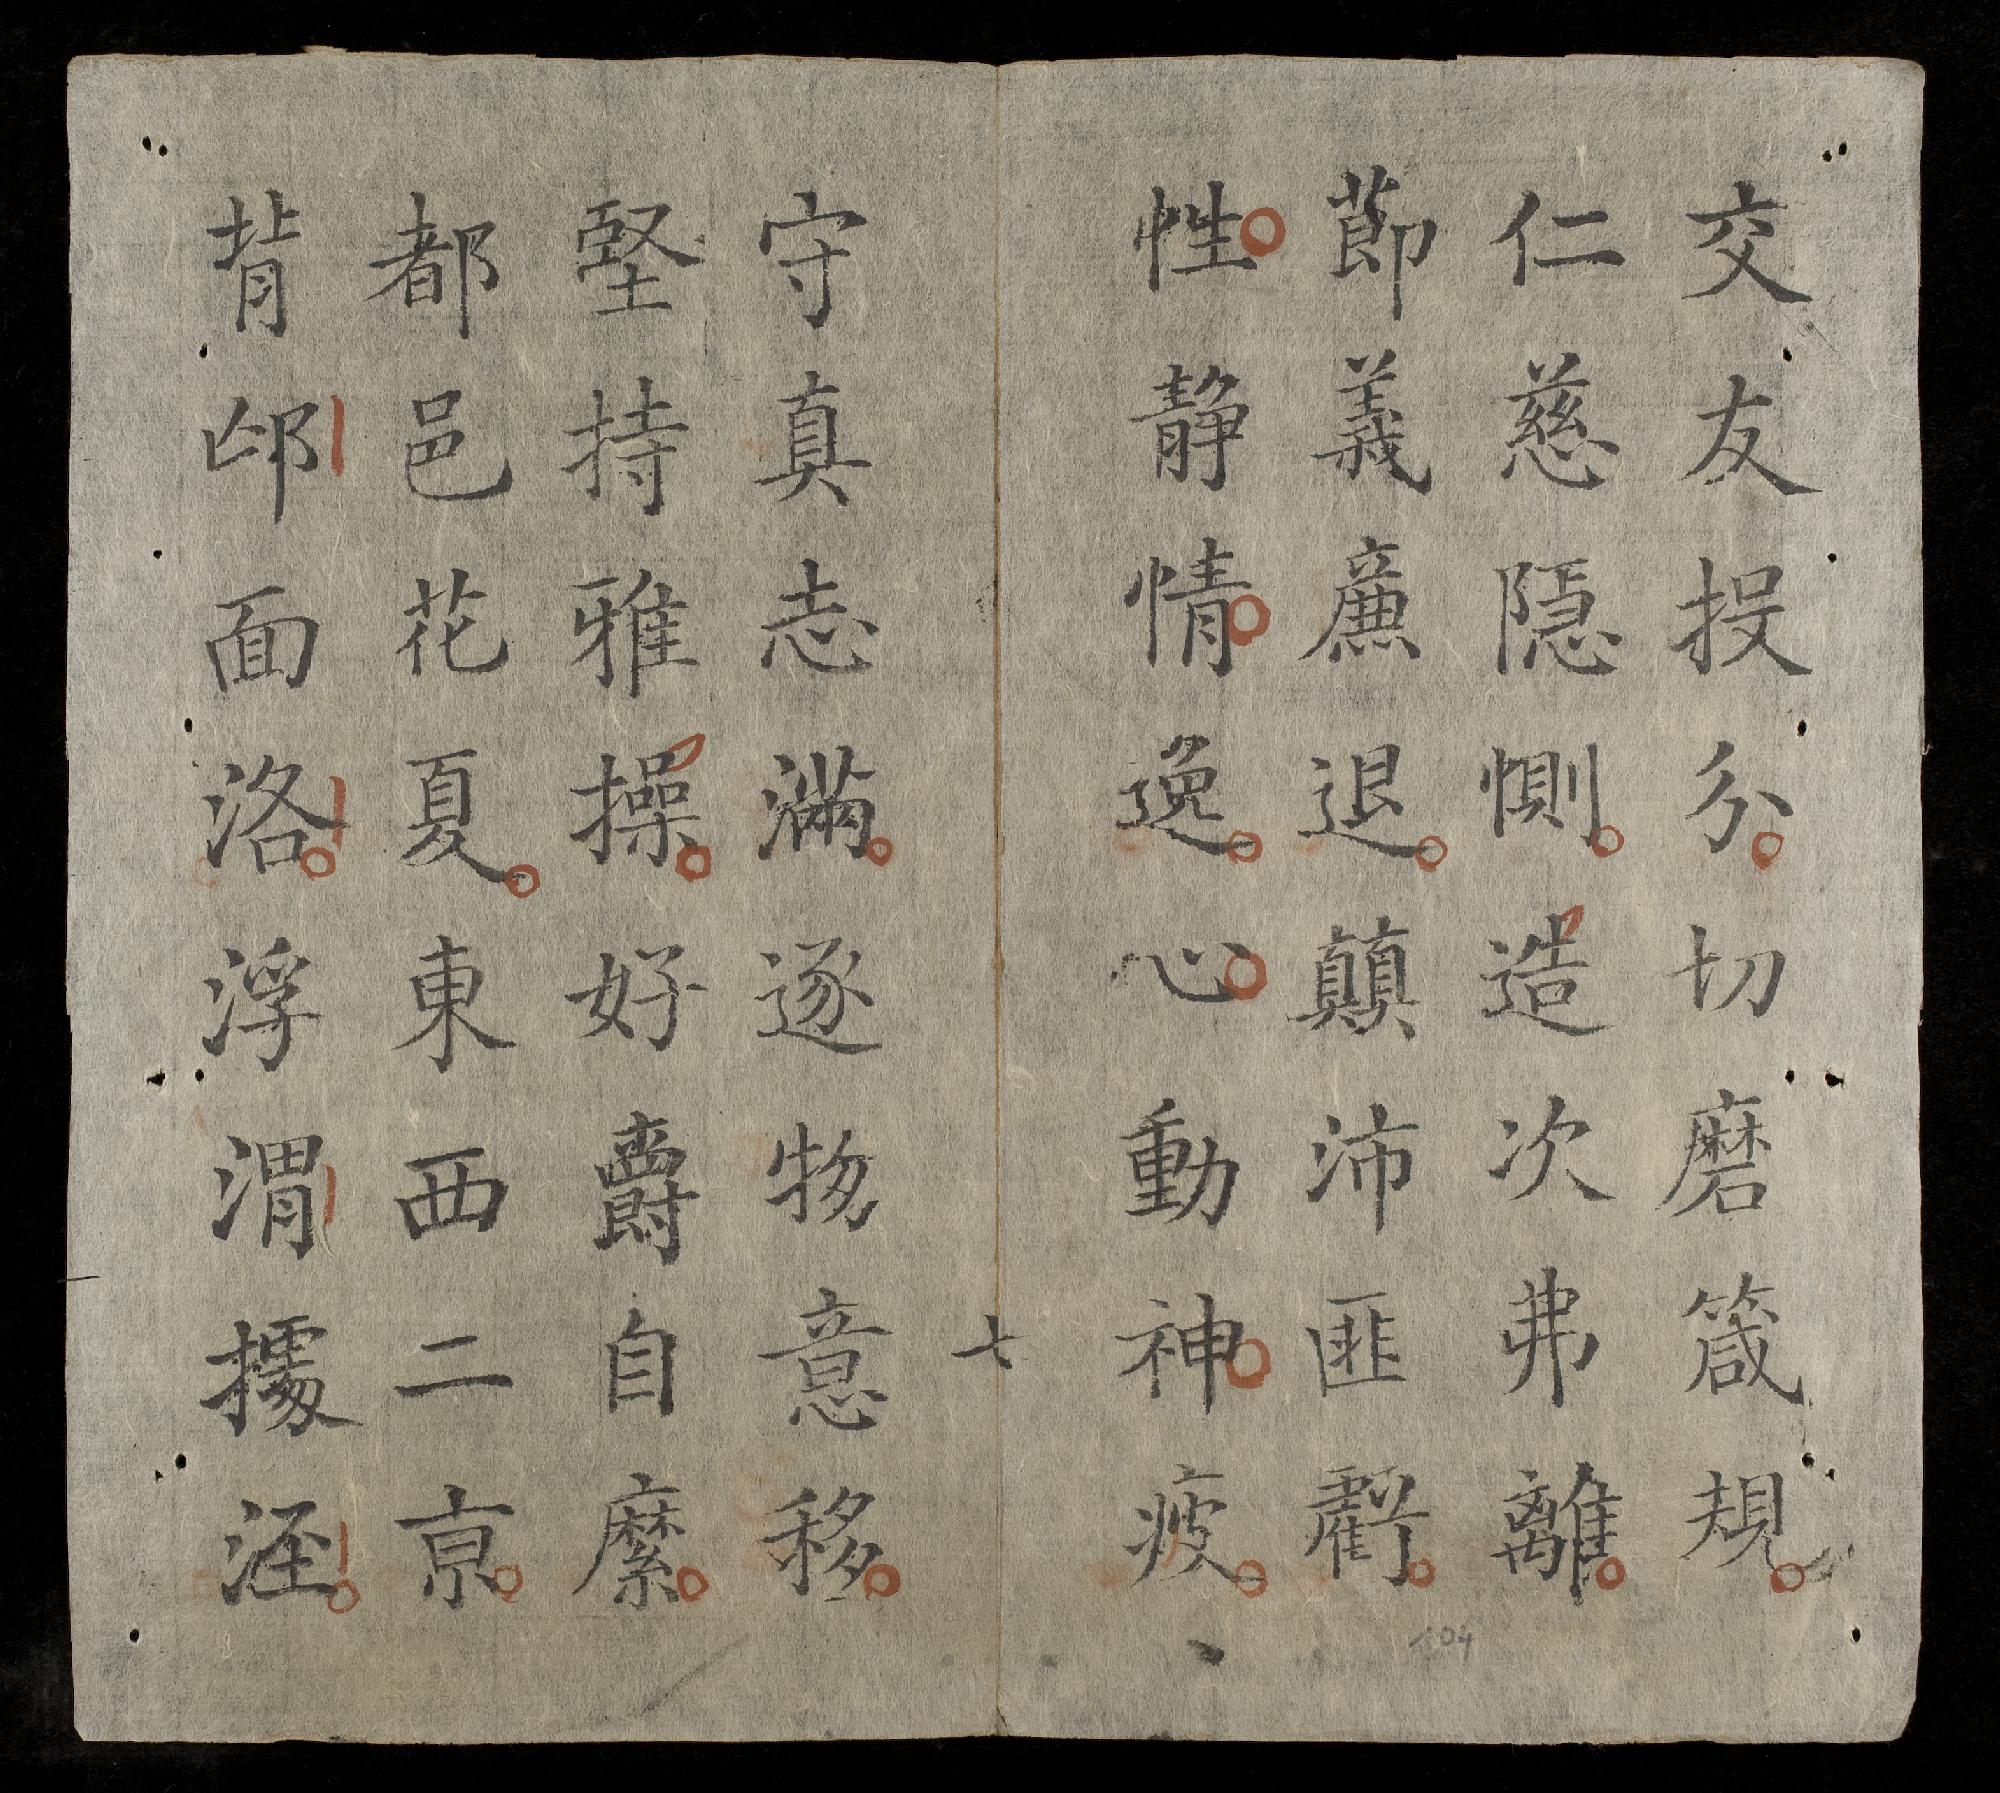 交友投分切磨箴規
仁慈隠惻造次弗離
莭義廉退顛沛匪虧
性静情逸心動神疲
七
守真志滿逐物意移
堅持雅操好爵自縻
都邑花夏東西二亰
背邙面洛浮渭據涇
104